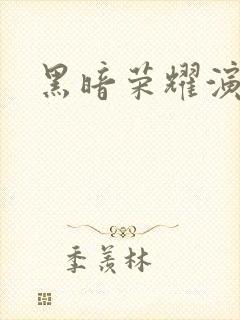 黑暗荣耀演
季羡林